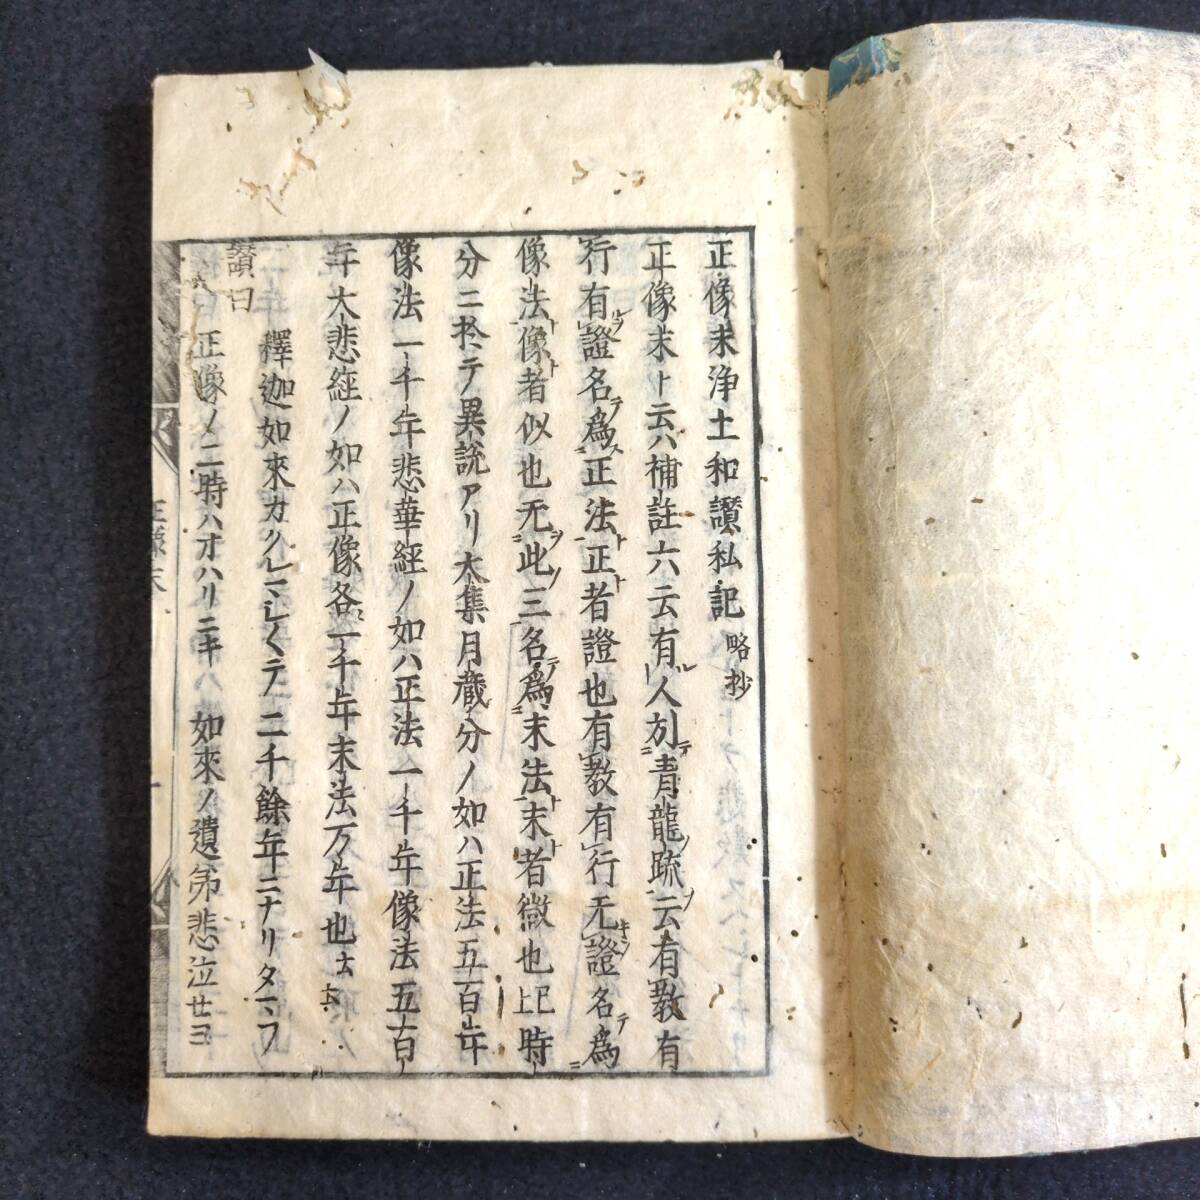 正像末浄土和讃私記 略抄
正像末ト云ハ補註六云有レ人列テ青龍疏ノ云有教有
行有證名爲正法ト正者證也有教有行无證名爲
像法ト像者似也无此三名爲末法ト末者微也
時
分二於テ異説アリ大集月藏分ノ如ハ正法五百年
像法一千年悲華經ノ如ハ正法一千年像法五百
年大悲經ノ如ハ正像各一千年末法万年也
讃曰
釋迦如來カクレマシ〱テ 二千餘年ニナリタマフ
正像ノ二時ハオハリニキ 如來ノ遺弟悲泣セヨ
正像末